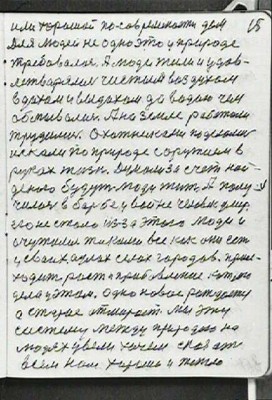 или хороший по современности дом 15
Для людей не одно это у природе
требовался. А люди жили и удов-
летварялися чистым воздухом
вдохом и выдохом да водою чем
обмывалися. А на земле работали
трудилися. Охотниками подходили
искали по природе с оружием в
руках жизнь. Думали за счет най-
деного будут люди жить. А полу-
чилось в борьбе у войне человек умер
его не стало из-за этого люди и
очутилися такими все как они есть
у своих селах городов. прих-
ходит роста прибавление
дела у этом. одно новое рождается
а старое отмирает. Мы эту
систему между природою на
людях увели хочем сказать
всем нам хорошо и тепло